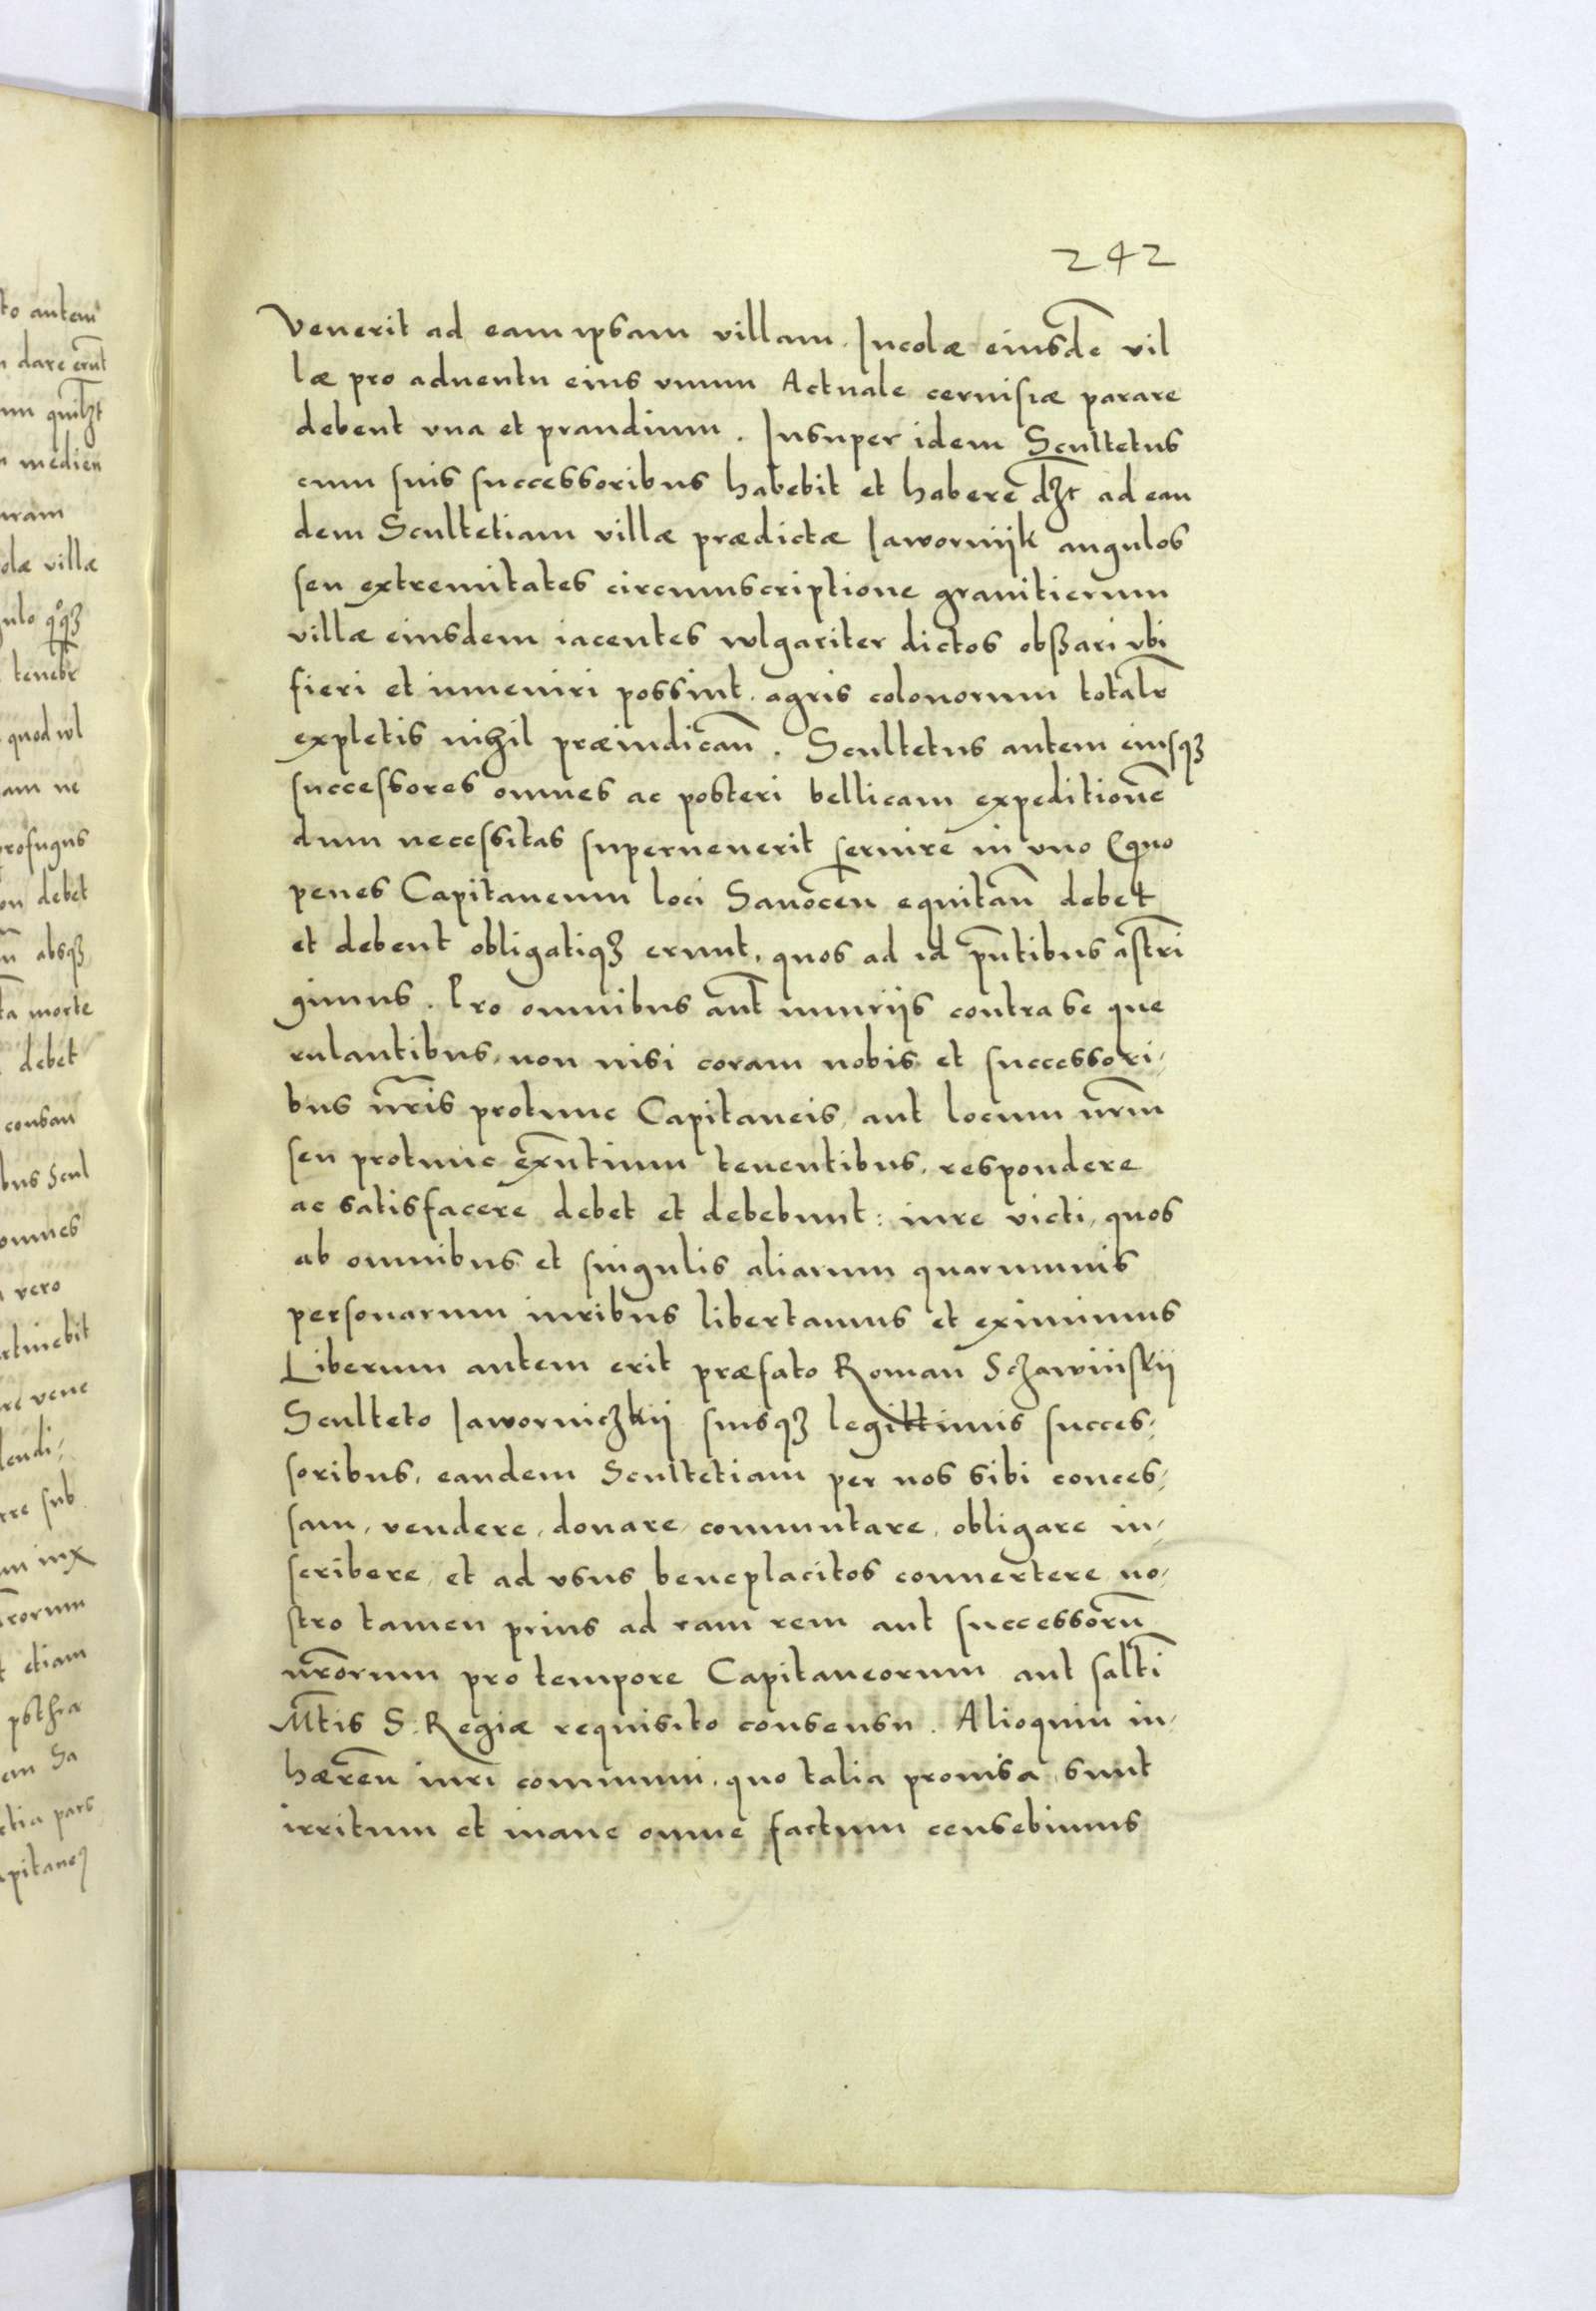 242
Venerit ad eam ipsam villam. Incolæ eiusdē vil
læ pro aduentu eius vnum Actuale ceruisiæ parare
debent vna et prandium. Insuper idem Scultetus
cum suis successoribus habebit et habere dꝫt ad ean
dem Scultetiam villæ prædictæ Jawornijk angulos
seu extremitates circumscriptione granitierum
villæ eiusdem iacentes wlgariter dictos obßari vbi
fieri et inueniri possint. agris colonorum totalr̄
expletis nihil præiudican̄. Scultetus autem eiusqꝫ
successores omnes ac posteri bellicam expeditionē
dum necessitas superuenerit seruire in vno Equo
penes Capitaneum loci Sanocen̄ equitan̄ debet
et debent obligatiqꝫ erunt, quos ad id pn̄tibus astri
gimus. Pro omnibus aūt iniuriis contra se que
rulantibus, non nisi coram nobis et successori-
bus nr̄is protunc Capitaneis, aut locum nr̄m
seu protunc exn̄tium tenentibus, respondere
ac satisfacere debet et debebunt: iure victi, quos
ab omnibus et singulis aliarum quarumuis
personarum iuribus libertamus et eximimus
Liberum autem erit præfato Roman Sczawiński
Sculteto Jaworniczkii suisqꝫ legittimis succes-
soribus, eandem Scultetiam per nos sibi conces-
sam, vendere, donare, commutare, obligare in-
scribere, et ad vsus beneplacitos conuertere no-
stro tamen prius ad ram rem aut successorū
nr̄orum pro tempore Capitaneorum aut saltī
Mt̄is S. Regiæ requisito consensu. Alioquin in-
hæren̄ iuri communi, quo talia prouisa sunt
irritum et inane omne factum censebimus
to autem
dare erūt
quilꝫt
medien
uram
olæ villæ
tenebr̄
quod wl
am ne
profugus
on debet
absqꝫ
morte
debet
consan
bus Scul
omnes
vero
rtinebit
re vene
lendi-
re sub
rorum
etiam
Sa
tia pars